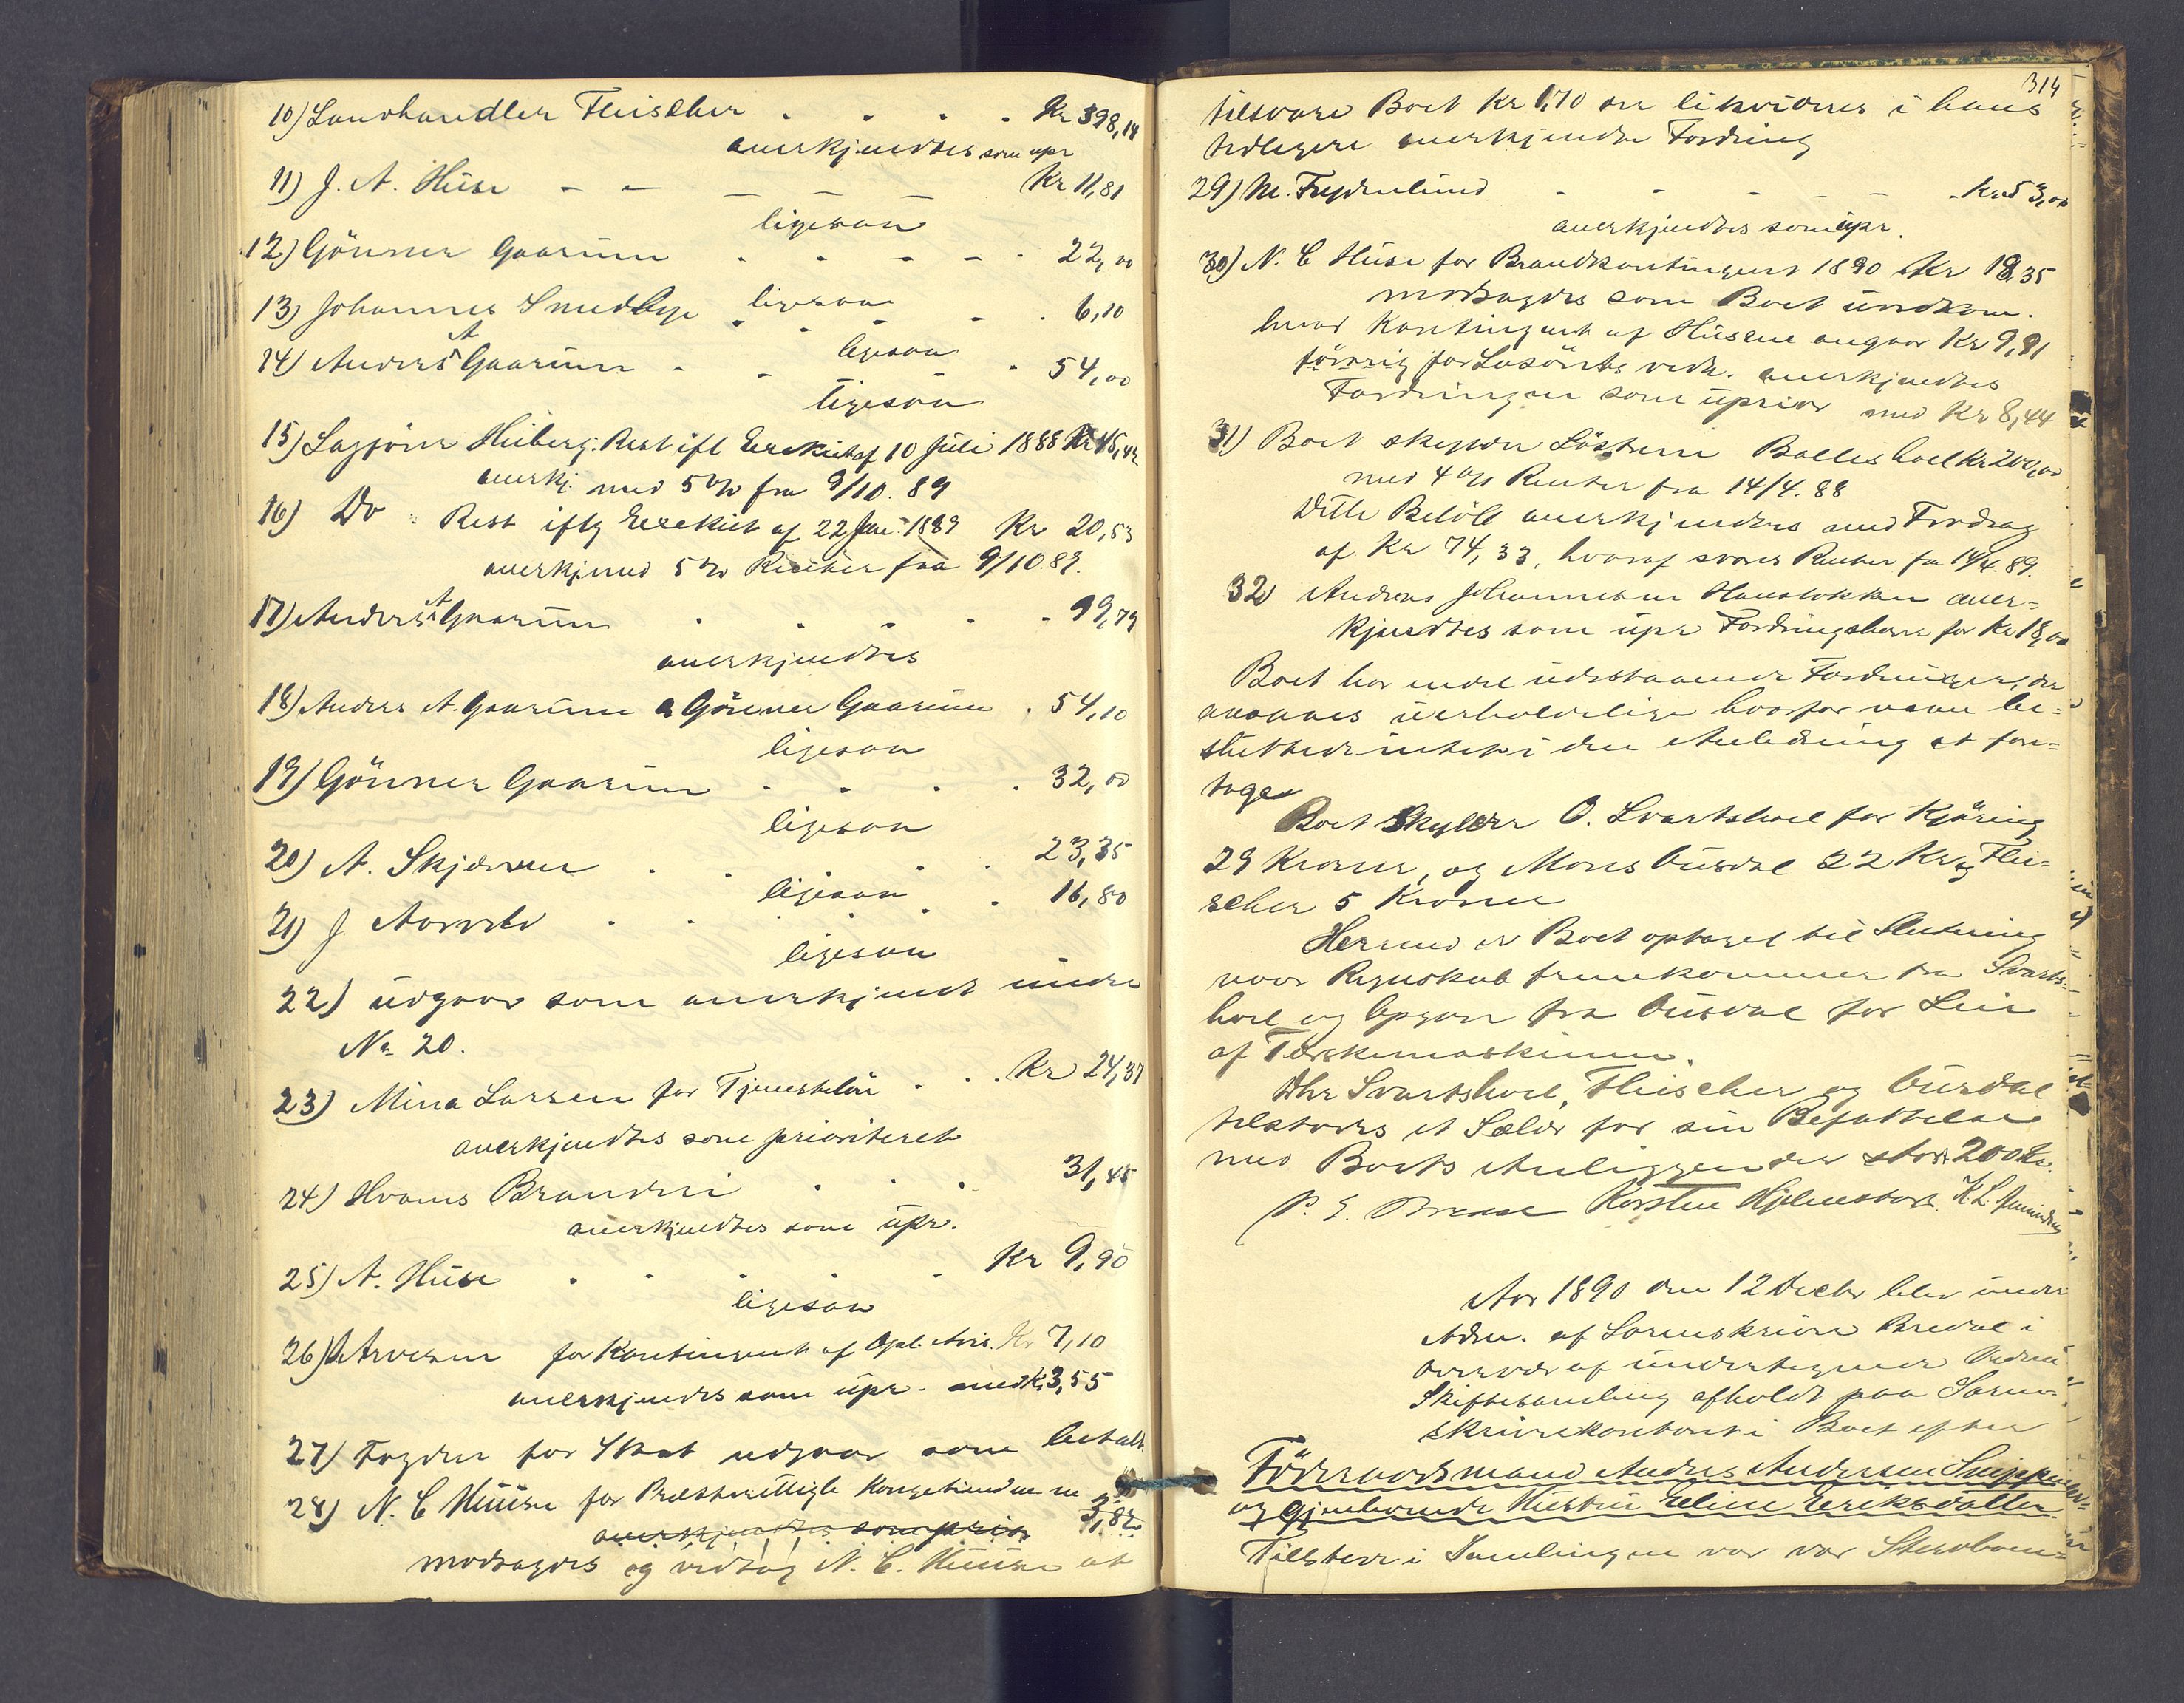 10) Landhandler Fleischer . . . . Kr 398,14
anerkjendtes som upr
11) J. A. Huse - - - - Kr 11,81
ligesaa
12) Gönner Gaarum . . . . . 22,00
ligesaa
13) Johannes Smedbye . . . . 6,10
ligesaa
14) Anders A Gaarum . . . . 54,00
ligesaa
15) Sagförer Heiberg: Rest ifl Exekut af 10 Juli 1888 Kr 45,42
anerkj. med 5 % fra 9/10. 89
16) Do : Rest iflg Exekut af 22 Jan. 1889 Kr 20,53
anerkj med 5 % Renter fra 9/10.89.
17) Anders A Gaarum . . . . . 99,79
anerkjendtes
18) Anders A. Gaarum & Gönner Gaarum . 54,10
ligesaa
19) Gönner Gaarum . . . . 32,00
ligesaa
20) A. Skjerven . . . . . 23,35
ligesaa
21) J. . . . . 16,80
ligesaa
22) udgaar som anerkjendt under
No 20.
23) Mina Larsen for Tjenestelön . . . Kr 24,37
anerkjendtes som prioriteret
24) Hvams Brænderi . . . 31,45
anerkjendtes som upr.
25) A. Huse . . . . . Kr 9,90
ligesaa
26) Arvesen for Kontingent af Opl. Avis. Kr 7,10
anerkjendes som upr. med Kr 3,55
27) Fogden for Skat udgaar som betalt
28) N. C Huuse for Kongetiende
anerkjendtes som prior
modsagdes og vedtog N. C. Huuse at
314
tilsvare Boet Kr 1,70 der likvideres i hans
tidligere anerkjendte Fordring
29) M. Frydenlund - - - - - Kr 53,00
anerkjendtes som upr.
30) N. C Huse for Brandkontingent 1890 Kr 18,35
modsagdes som Boet uvedkom.
hvad Kontingent af Husene angaar Kr 9,91
forövrig for Lösörets vedk. anerkjendtes
Fordringen som uprior med Kr 8,44
31) Boet skylder Balleshoel Kr 200,00
med 4 % Renter fra 14/4. 88
Dette Belöb anerkjendes med Fradrag
af Kr 74,33, hvoraf svares Renter fra 14/4. 89.
32) Andreas Johannesen Hauslokken aner=
kjendtes som upr Fordringshaver for Kr 18,00
Boet har endel udestaaende Fordringer, der
ansaaes uerholdelige hvorfor man be=
sluttede intet i den Anledning at fore=
tage
Boet skylder O. Svartshoel for Kjöring
29 Kroner, og Mons Ousdal 22 Kr og Flei=
scher 5 Kroner
Hermed er Boet optaget til Slutning
naar Regnskab fremkommer fra Svarts=
hoel og Opgave fra Ousdal for Leie
af Tærskemaskinen.
Dhr Svartshoel, Fleischer og Ousdal
tilstodes et Salær for sin Befattelse
med Boets Anliggender stort 200 Kr.
Karsten Hjelmstad. K. L.
Aar 1890 den 12 Decbr blev under
Adm. af Sorenskriver Bredal i
Overvær af undertegnede Vidner
Skiftesamling afholdt paa Soren=
skriverkontoret i Boet efter
Föderaadsmand Anders Andersen
og gjenlevende Hustru Eline Eriksdatter
Tilstede i Samlingen var Sterboen=